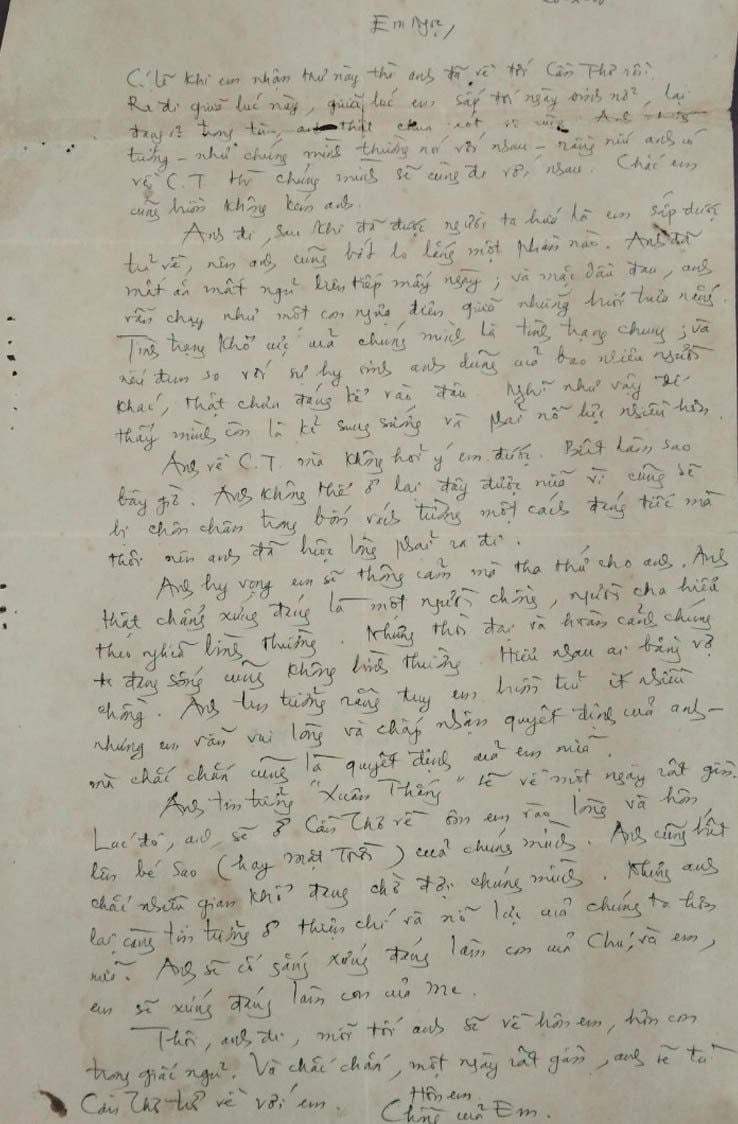 Em Ngọc,
Có lẽ khi em nhận thư này thì anh đã về tới Cần Thơ rồi.
Ra đi giữa lúc này, giữa lúc em sắp tới ngày sinh nở, lại
đang ở trong tù, anh thật chua xót vô cùng. Anh
tưởng - như chúng mình thường nói với nhau - rằng nếu anh có
về C.T. thì chúng mình sẽ cùng đi với nhau. Chắc em
cũng buồn không kém anh.
Anh đi, sau khi đã được người ta hứa là em sắp được
trở về, nên anh cũng bớt lo lắng một phần nào. Anh đã
mất ăn mất ngủ liên tiếp mấy ngày; và mặc dầu đau, anh
vẫn chạy như một con ngựa điên giữa những buổi trưa nắng.
Tình trạng khổ cực của chúng mình là tình trạng chung; và
nếu đem so với sự hy sinh anh dũng của bao nhiêu người
khác, thật chưa đáng kể vào đâu. Nghĩ như vậy để
thấy mình còn là kẻ sung sướng và phải nỗ lực nhiều hơn.
Anh về C.T. mà không hỏi ý em được. Biết làm sao
bây giờ. Anh không thể ở lại đây được nữa vì cũng sẽ
bị chôn chân trong bốn vách tường một cách đáng tiếc mà
thôi nên anh đã buộc lòng phải ra đi.
Anh hy vọng em sẽ thông cảm mà tha thứ cho anh. Anh
thật chẳng xứng đáng là một người chồng, người cha hiểu
theo nghĩa bình thường. Nhưng thời đại và hoàn cảnh chúng
ta đang sống cũng không bình thường. Hiểu nhau ai bằng vợ
chồng. Anh tin tưởng rằng tuy em buồn tủi ít nhiều
nhưng em vẫn vui lòng và chấp nhận quyết định của anh -
mà chắc chắn cũng là quyết định của em nữa.
Anh tin tưởng "Xuân Thắng" sẽ về một ngày rất gần.
Lúc đó, anh sẽ ở Cần Thơ về ôm em vào lòng và hôn
lên bé Sao (hay Mặt Trời) của chúng mình. Anh cũng biết
chắc nhiều gian khổ đang chờ đợi chúng mình. Nhưng anh
lại càng tin tưởng ở thiện chí và nỗ lực của chúng ta hơn
nữa. Anh sẽ cố gắng xứng đáng làm con của Chú, và em,
em sẽ xứng đáng làm con của Me.
Thôi, anh đi, mỗi tối anh sẽ về hôn em, hôn con
trong giấc ngủ. Và chắc chắn, một ngày rất gần, anh sẽ từ
Cần Thơ trở về với em.
Hôn em
Chồng của Em.